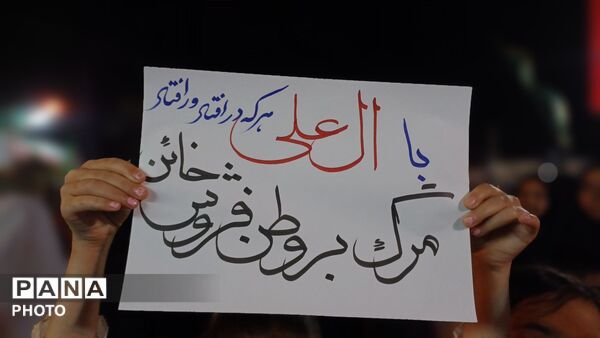 با ال علی هرکه در افتاد ور افتاد
مرگ بر وطن فروش خائن
PANA
PHOTO